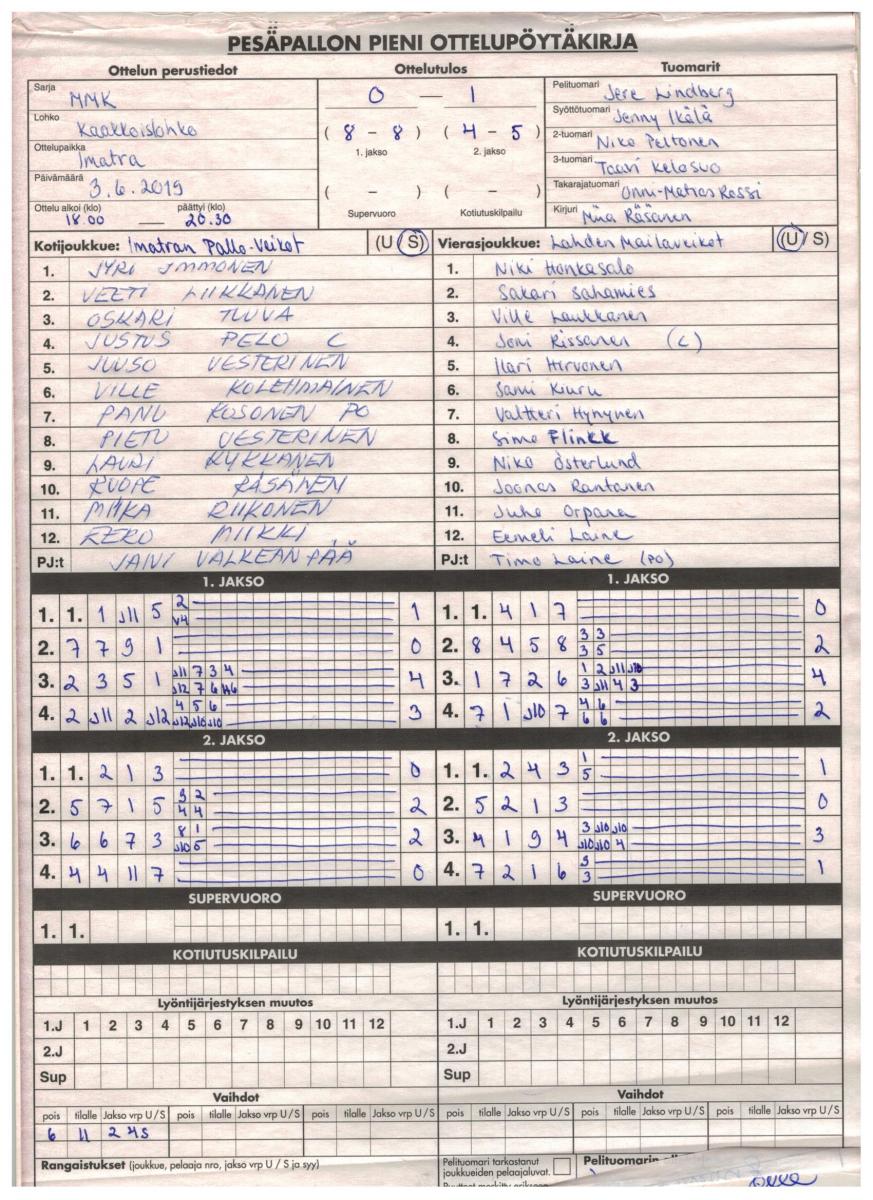 PESÄPALLON PIENI OTTELUPÖYTÄKIRJA
Ottelun perustiedot
Sarja MMK
Lohko Kaakkoislohko
Ottelupaikka Imatra
Päivämäärä 3.6.2019
Ottelu alkoi (klo) päättyi (klo)
18.00 — 20.30
Ottelutulos
0 — 1
( 8 - 8 ) ( 4 - 5 )
1. jakso 2. jakso
( - ) ( - )
Supervuoro Kotiutuskilpailu
Tuomarit
Pelituomari Jere Lindberg
Syöttötuomari Jenny Ikälä
2-tuomari Niko Peltonen
3-tuomari Taavi Kelosuo
Takarajatuomari Onni-Matias Rossi
Kirjuri Miia Räsänen
Kotijoukkue: Imatran Pallo-Veikot (U / S)
1. JYRI IMMONEN
2. VEETI LIIKKANEN
3. OSKARI TUVA
4. JUSTUS PELO C
5. JUUSO VESTERINEN
6. VILLE KOLEHMAINEN
7. PANU KOSONEN PO
8. PIETU VESTERINEN
9. LAURI KYKKÄNEN
10. ROOPE RÄSÄNEN
11. MIIKA RIIKONEN
12. EERO MIIKKI
PJ:t JANI VALKEAPÄÄ
Vierasjoukkue: Lahden Mailaveikot (U / S)
1. Niki Honkasalo
2. Sakari Sahamies
3. Ville Laukkanen
4. Joni Rissanen (C)
5. Ilari Hirvonen
6. Sami Kiuru
7. Valtteri Hynynen
8. Simo Flinkk
9. Niko Österlund
10. Joonas Rantanen
11. Juho Orpana
12. Eemeli Laine
PJ:t Timo Laine (PO)
1. JAKSO
1. 1. 1 J11 5 2 V4 1
2. 7 7 9 1 0
3. 2 3 5 1 J11 7 3 4 J12 7 6 4
4. 2 J11 2 J12 4 5 6 J12 J10 J10 3
1. JAKSO
1. 1. 4 1 7 0
2. 8 4 5 8 3 3 3 5 2
3. 1 7 2 6 1 2 J11 J10 3 J11 4 3 4
4. 7 1 J10 7 4 6 6 6 2
2. JAKSO
1. 1. 2 1 3 0
2. 5 7 1 5 9 2 4 4 2
3. 6 6 7 3 8 1 J10 5 2
4. 4 4 11 7 0
2. JAKSO
1. 1. 2 4 3 1 5 1
2. 5 2 1 3 0
3. 4 1 9 4 3 J10 J10 J10 J10 4 3
4. 7 2 1 6 9 3 1
SUPERVUORO
1. 1.
SUPERVUORO
1. 1.
KOTIUTUSKILPAILU
KOTIUTUSKILPAILU
Lyöntijärjestyksen muutos
1.J 1 2 3 4 5 6 7 8 9 10 11 12
2.J
Sup
Lyöntijärjestyksen muutos
1.J 1 2 3 4 5 6 7 8 9 10 11 12
2.J
Sup
Vaihdot
pois tilalle Jakso vrp U / S pois tilalle Jakso vrp U / S pois tilalle Jakso vrp U / S
6 11 2 4S
Vaihdot
pois tilalle Jakso vrp U / S pois tilalle Jakso vrp U / S pois tilalle Jakso vrp U / S
Rangaistukset (joukkue, pelaaja nro, jakso vrp U / S ja syy)
Pelituomari tarkastanut
joukkueiden pelaajaluvat.